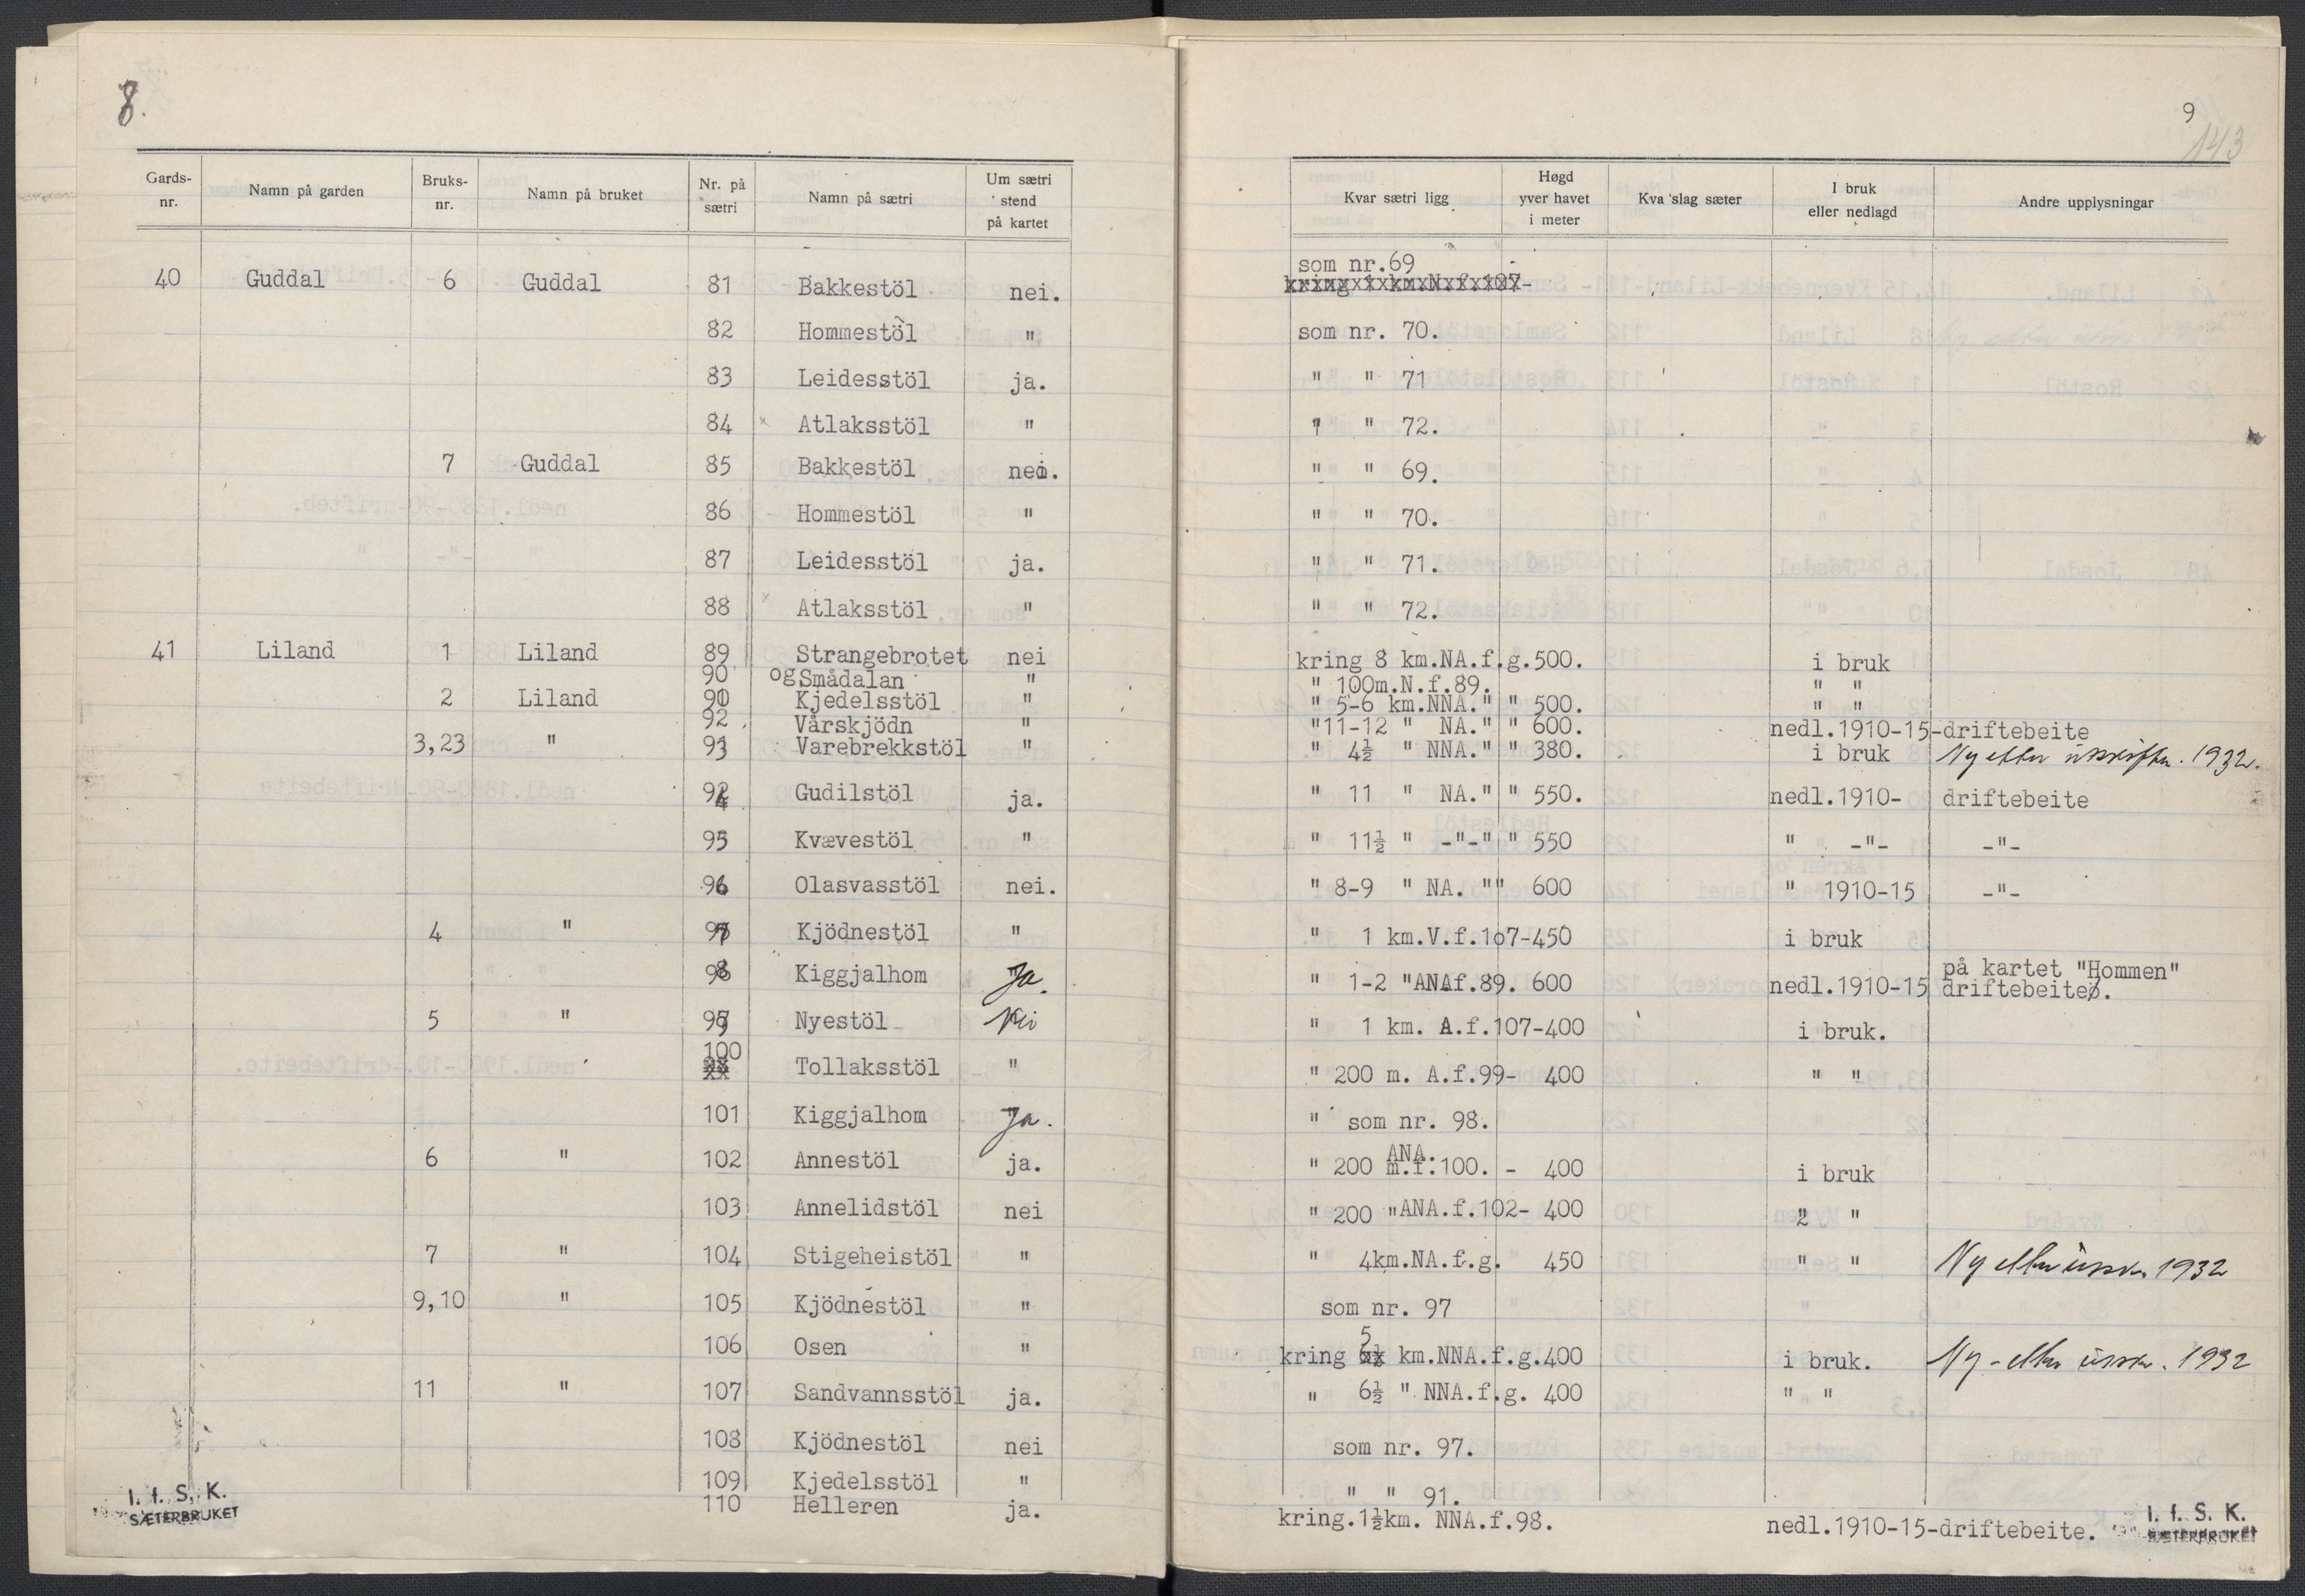 8.
9
143
Gards-nr. Namn på garden Bruks-nr. Namn på bruket Nr. på sætri Namn på sætri Um sætri stend på kartet Kvar sætri ligg Høgd yver havet i meter Kva slag sæter I bruk eller nedlagd Andre upplysningar
40 Guddal 6 Guddal 81 Bakkestöl nei. som nr.69
82 Hommestöl " som nr. 70.
83 Leidesstöl ja. " " 71
84 Atlaksstöl " " " 72.
7 Guddal 85 Bakkestöl nei. " " 69.
86 Hommestöl " " " 70.
87 Leidesstöl ja. " " 71.
88 Atlaksstöl " " " 72.
41 Liland 1 Liland 89 Strangebrotet nei kring 8 km.NA.f.g.500. i bruk
90 og Smådalan " " 100m.N.f.89. " "
2 Liland 91 Kjedelsstöl " " 5-6 km.NNA." " 500. " "
92 Vårskjödn " "11-12 " NA." " 600. nedl.1910-15-driftebeite
3,23 " 93 Varebrekkstöl " " 4½ " NNA." " 380. i bruk Ny etter utskiftn. 1932.
94 Gudilstöl ja. " 11 " NA." " 550. nedl.1910- driftebeite
95 Kvævestöl " " 11½ " -"-" " 550 " -"- -"-
96 Olasvasstöl nei. " 8-9 " NA. "" 600 " 1910-15 -"-
4 " 97 Kjödnestöl " " 1 km.V.f.107-450 i bruk
98 Kiggjalhom Ja. " 1-2 "ANAf.89. 600 nedl.1910-15 på kartet "Hommen" driftebeite.
5 " 99 Nyestöl Nei " 1 km. A.f.107-400 i bruk.
100 Tollaksstöl " " 200 m. A.f.99- 400 " "
101 Kiggjalhom Ja. " som nr. 98.
6 " 102 Annestöl ja. " 200 m.ANA.f.100. - 400 i bruk
103 Annelidstöl nei " 200 "ANA.f.102- 400 " "
7 " 104 Stigeheistöl " " 4km.NA.f.g. 450 " " Ny etter utskr. 1932
9,10 " 105 Kjödnestöl " som nr. 97
106 Osen " kring 5½ km.NNA.f.g.400 i bruk. Ny - etter utskr. 1932
11 " 107 Sandvannsstöl ja. " 6½ " NNA.f.g. 400 " "
108 Kjödnestöl nei som nr. 97.
109 Kjedelsstöl " " " 91.
110 Helleren ja. kring.1½km. NNA.f.98. nedl.1910-15-driftebeite.
I. f. S. K.
SÆTERBRUKET
I. f. S. K.
SÆTERBRUKET